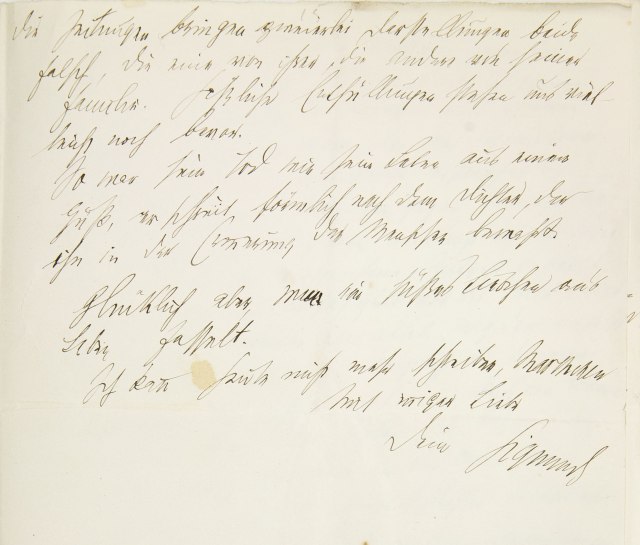 die Zeitungen bringen zweierlei Darstellungen beide
falsch, die eine von ihrer, die andere von seiner
Familie. Häßliche Enthüllungen stehen uns viel-
leicht noch bevor.
So war sein Tod wie sein Leben aus einem
Guß, er schreit förmlich nach dem Dichter, der
ihn in der Erinnerung der Menschen bewahrt.
Glücklich aber, wenn ein süßes Liebchen ans
Leben fesselt.
Ich kann heute nicht mehr schreiben, Marthchen
Mit inniger Liebe
Dein Sigmund